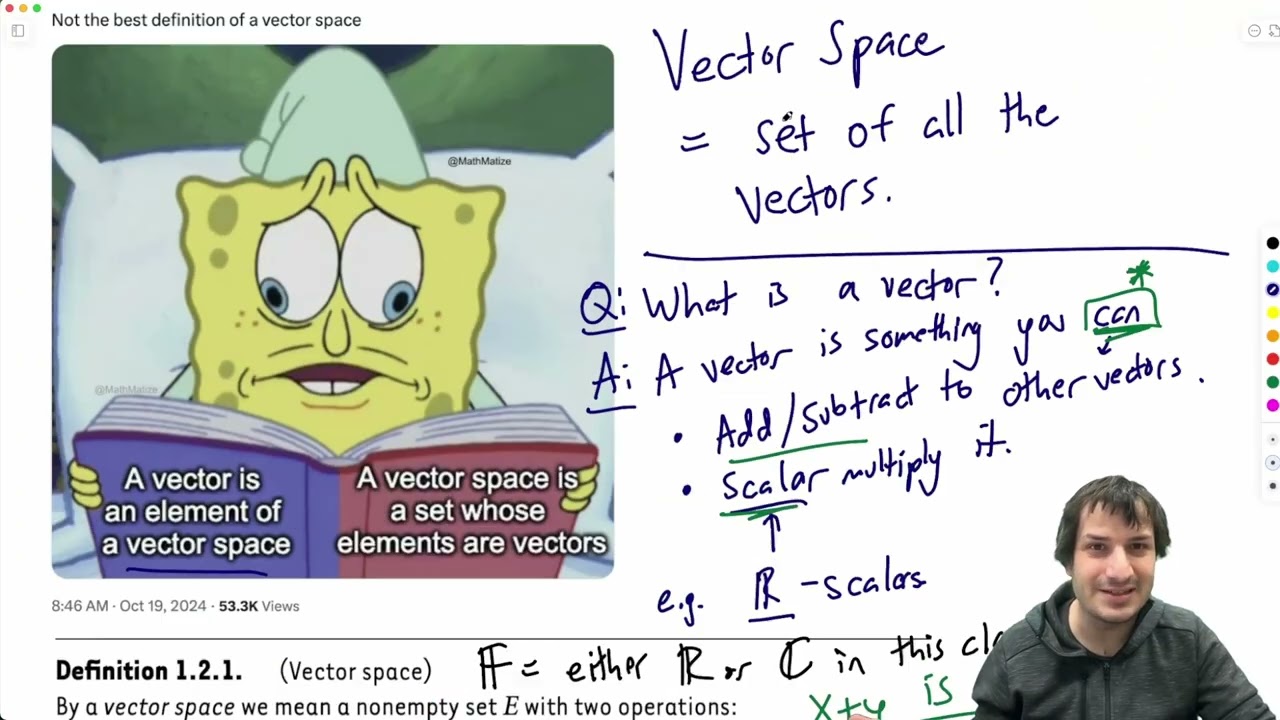 Not the best definition of a vector space
@MathMatize
@MathMatize
A vector is
an element of
a vector space
A vector space is
a set whose
elements are vectors
8:46 AM · Oct 19, 2024 · 53.3K Views
Vector Space
= set of all the
vectors.
Q: What is a vector?
A: A vector is something you can
• Add/Subtract to other vectors.
• Scalar multiply it.
e.g. ℝ-scalars
Definition 1.2.1. (Vector space)
𝔽 = either ℝ or ℂ in this
By a vector space we mean a nonempty set E with two operations:
x+y is